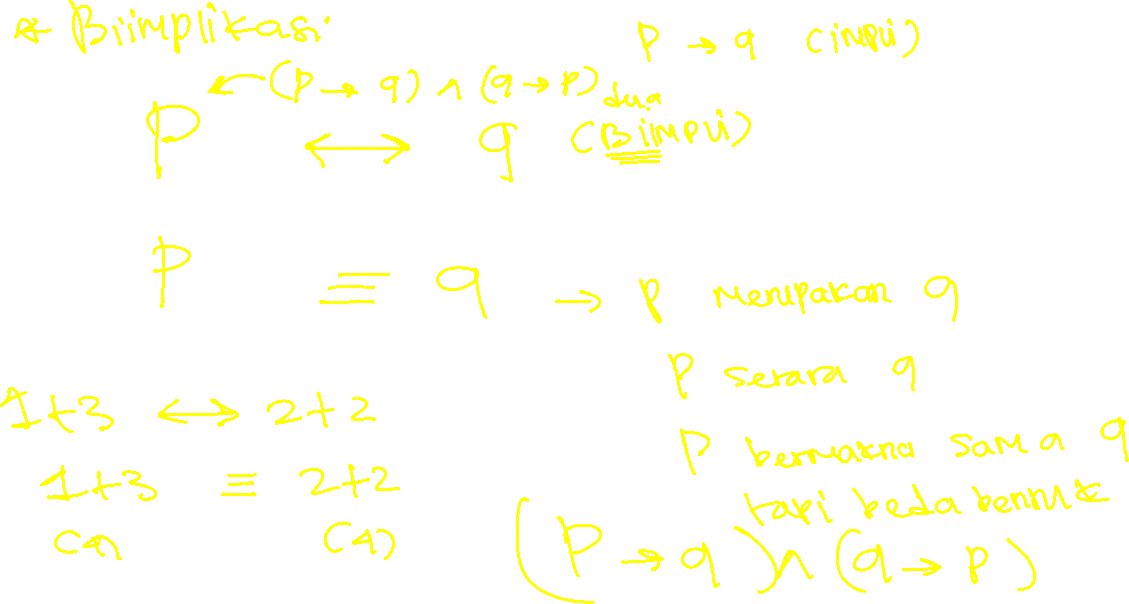 * Biimplikasi:
p → q (impli)
(p → q) ∧ (q → p)
dua
p ↔ q (Bimpli)
p ≡ q → p merupakan q
p setara q
1+3 ↔ 2+2
p bermakna sama q
1+3 ≡ 2+2
tapi beda bentuk
(4) (4)
(p → q) ∧ (q → p)